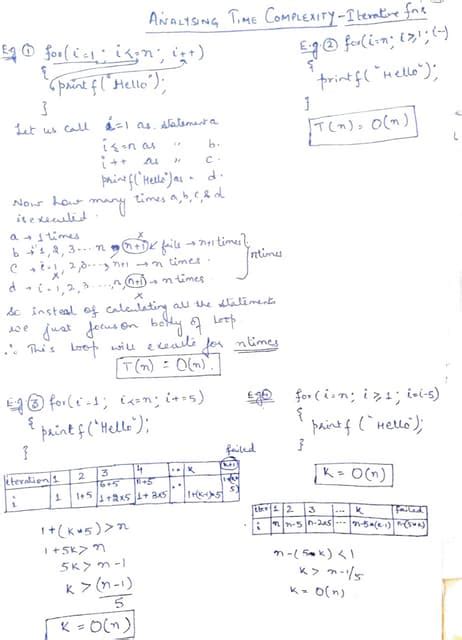 ANALYSING TIME COMPLEXITY - Iterative fns
Eg ① for(i=1; i<=n; i++)
{
printf("Hello");
}
Let us call i=1 as statement a
i<=n as " b.
i++ as " c.
printf("Hello") as " d.
Now how many times a, b, c, & d
is executed.
a → 1 times
b → 1, 2, 3 ... n, (n+1) fails → n+1 times
c → i=1, 2, 3 ..., n+1 → n times.
d → i=1, 2, 3 ..., n, (n+1) → n times
} n times
So instead of calculating all the statements
we just focus on body of loop
∴ This loop will execute for n times
T(n) = O(n).
Eg ② for(i=n; i≥1; i--)
{
printf("Hello");
}
T(n) = O(n)
E.g ③ for(i=1; i<=n; i+=5)
{
printf("Hello");
}
failed
iteration 1 2 3 4 ... k k+1
i 1 1+5 1+2x5 1+3x5 ... 1+(k-1)*5 1+(k*5)
1+(k*5) > n
1+5k > n
5k > n-1
k > (n-1)
5
k = O(n)
Eg④ for(i=n; i≥1; i=i-5)
{
printf("Hello");
}
k = O(n)
iter 1 2 3 ... k failed
i n n-5 n-2x5 ... n-5*(k-1) n-(5*k)
n-(5*k) < 1
k > n-1/5
k = O(n)